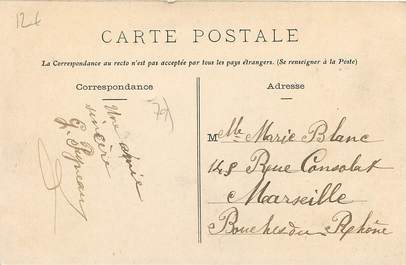 12€
CARTE POSTALE
La Correspondance au recto n'est pas acceptée par tous les pays étrangers. (Se renseigner à la Poste)
Correspondance
Adresse
Une amie
sincère
G.
Mlle Marie Blanc
148 Rue Consolat
Marseille
Bouches du Rhône